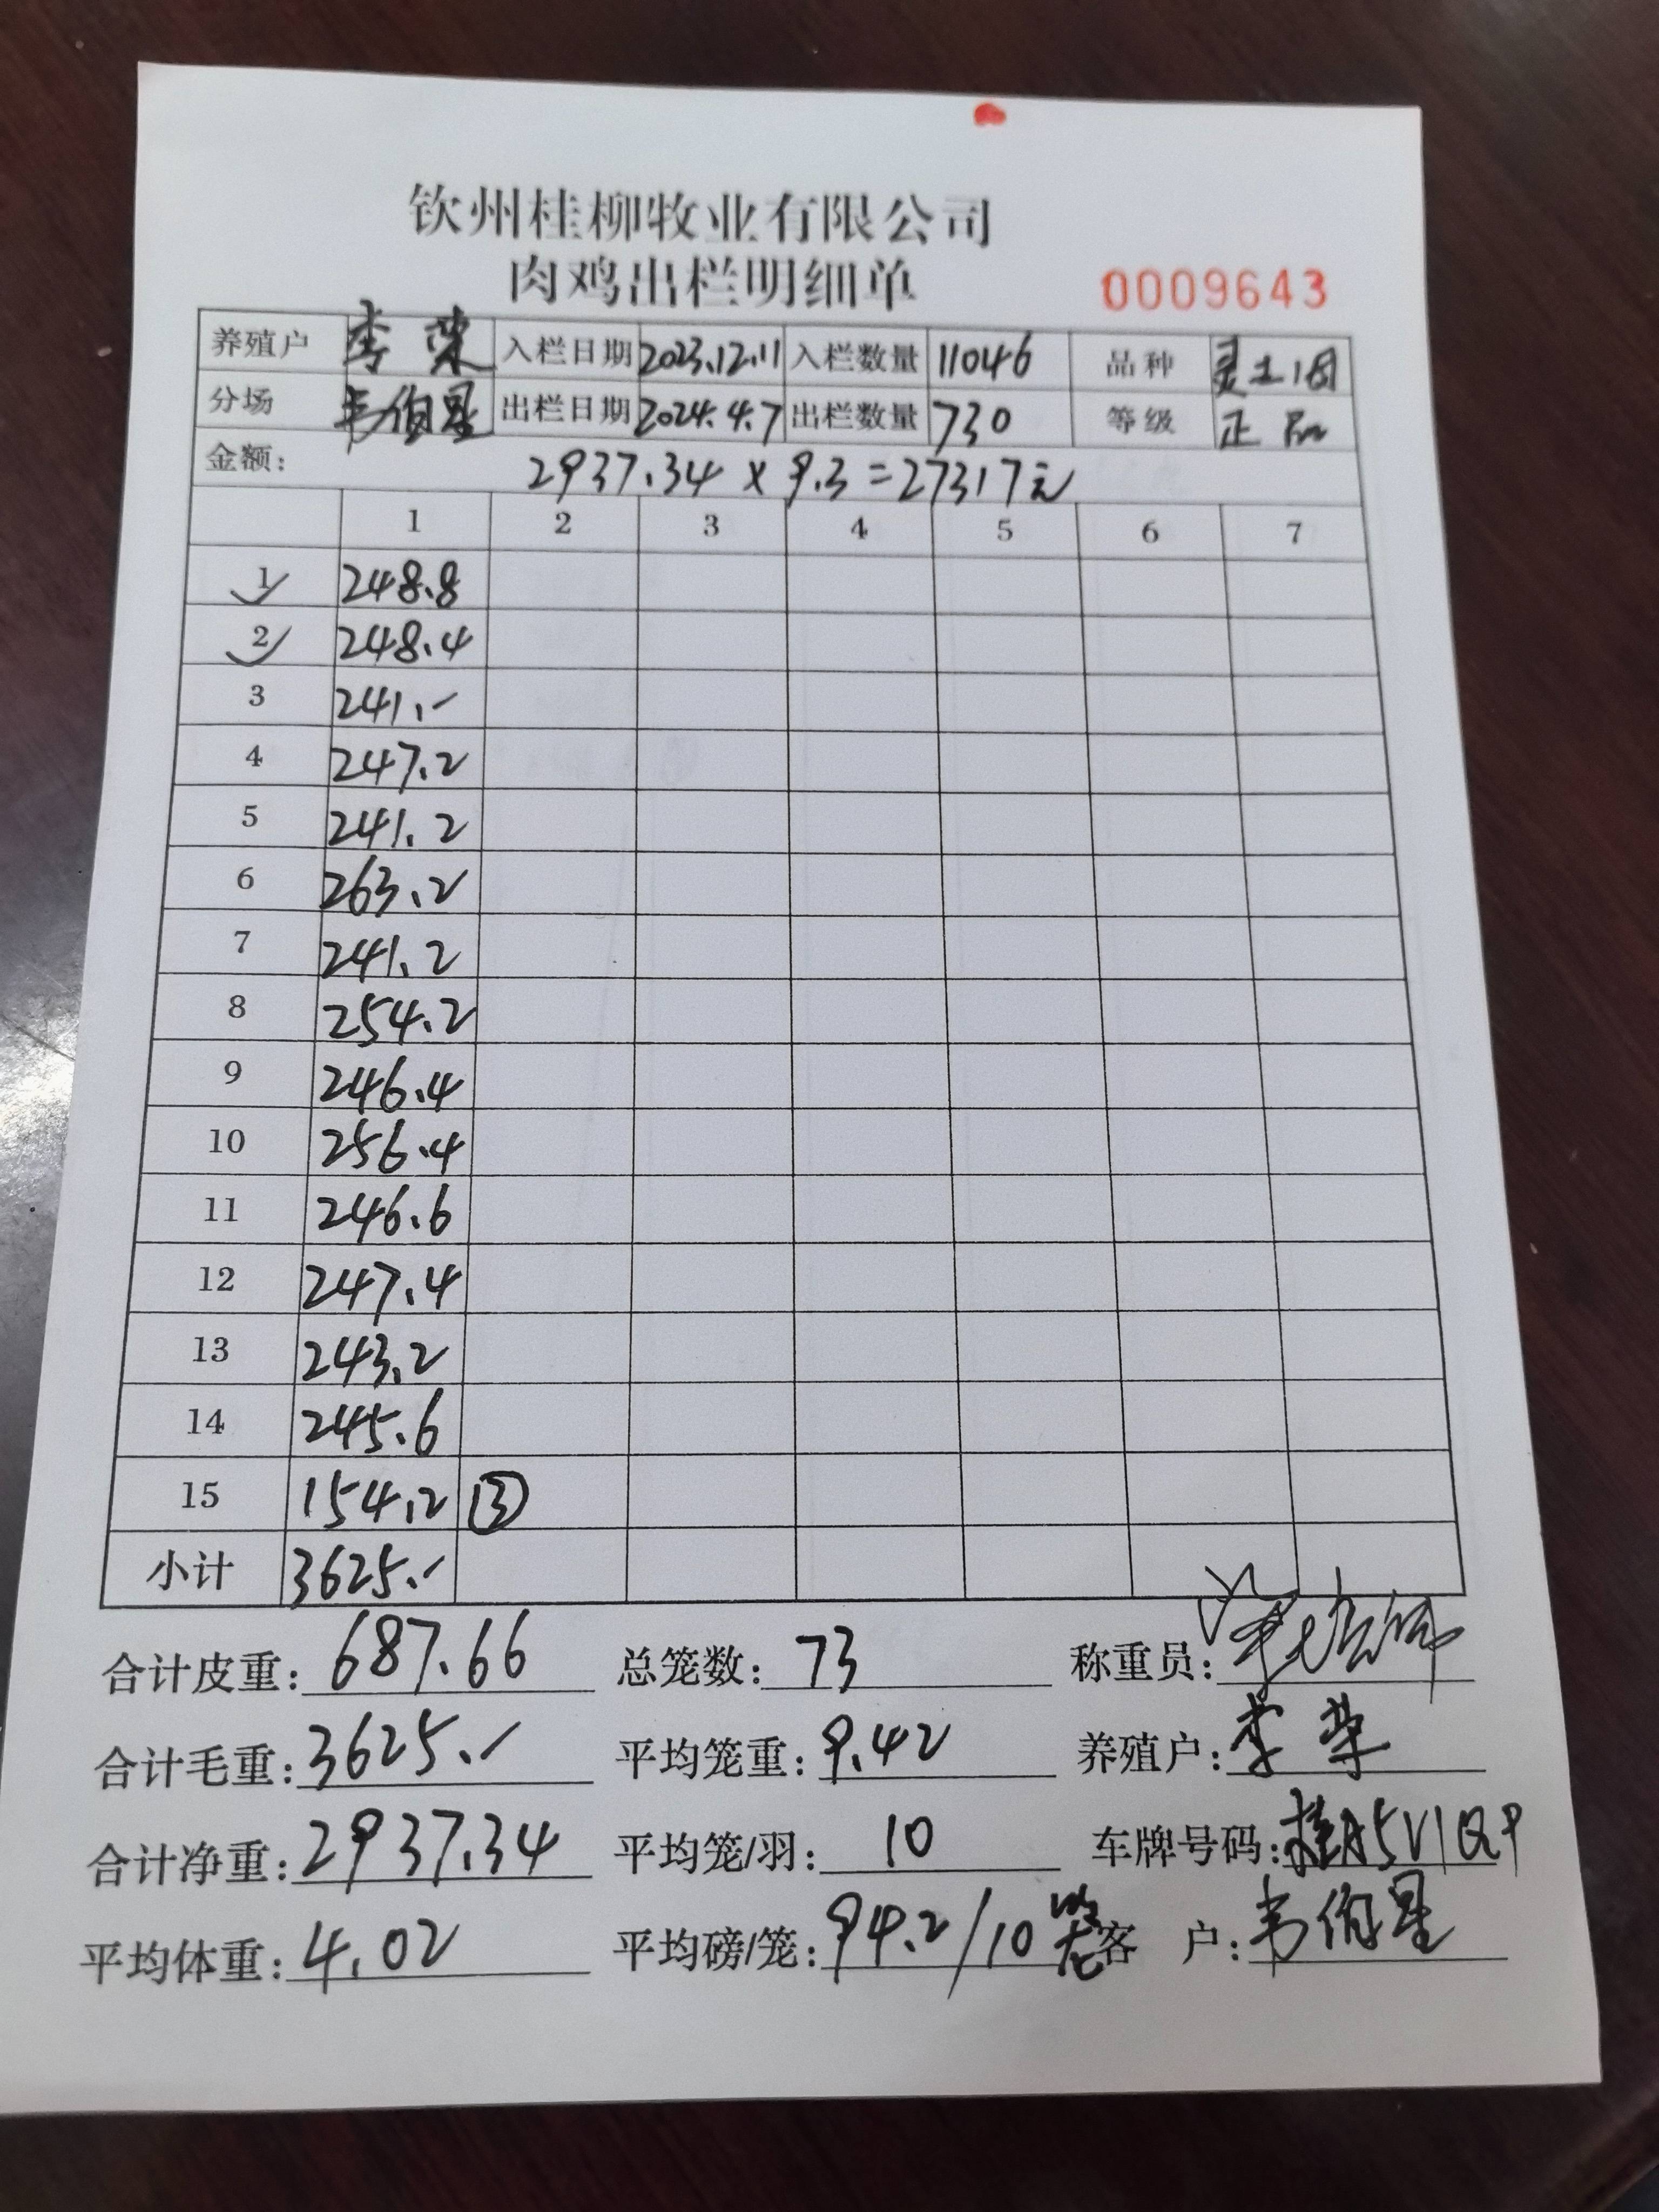 钦州桂柳牧业有限公司
肉鸡出栏明细单 0009643
养殖户 李荣 入栏日期 2023.12.11 入栏数量 11046 品种
分场 韦伯星 出栏日期 2024.4.7 出栏数量 730 等级 正品
金额: 2937.34 x 9.3=27317元
1 2 3 4 5 6 7
1 248.8
2 248.4
3 241.-
4 247.2
5 241.2
6 263.2
7 241.2
8 254.2
9 246.4
10 256.4
11 246.6
12 247.4
13 243.2
14 245.6
15 154.2 ③
小计 3625.-
合计皮重: 687.66 总笼数: 73 称重员:
合计毛重: 3625.- 平均笼重: 9.42 养殖户: 李荣
合计净重: 2937.34 平均笼/羽: 10 车牌号码: 桂A5V1Q9
平均体重: 4.02 平均磅/笼: 94.2/10笼 客 户: 韦伯星